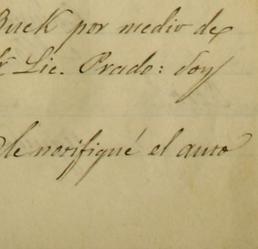 Buck por medio de
Lic. Prado: doy
le notifiqué el auto